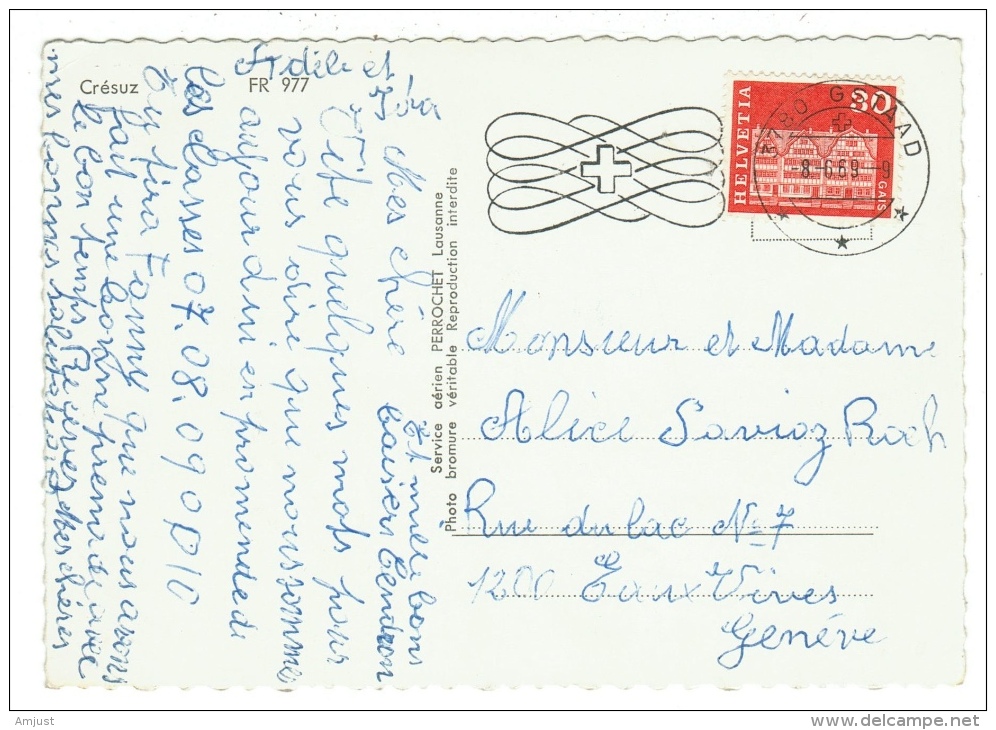 Crésuz
FR 977
Fidèle et
Mes chère
Vite quelques mots pour
vous dire que nous sommes
aujourdui en promenade
les classes 07.08.09 010
Fanny que nous avons
fait une bonne premnade avec
le bon temps Recevez Mes chères
mes bonnes
Et mille bons
baisers
Service aérien PERROCHET Lausanne
Photo bromure véritable Reproduction interdite
HELVETIA
30
GAIS
3780 GSTAAD
8.-6.69.-9
Monsieur et Madame
Alice Savioz Roch
Rue du lac No 7
1200 Eaux Vives
Genève
Amjust
www.delcampe.net